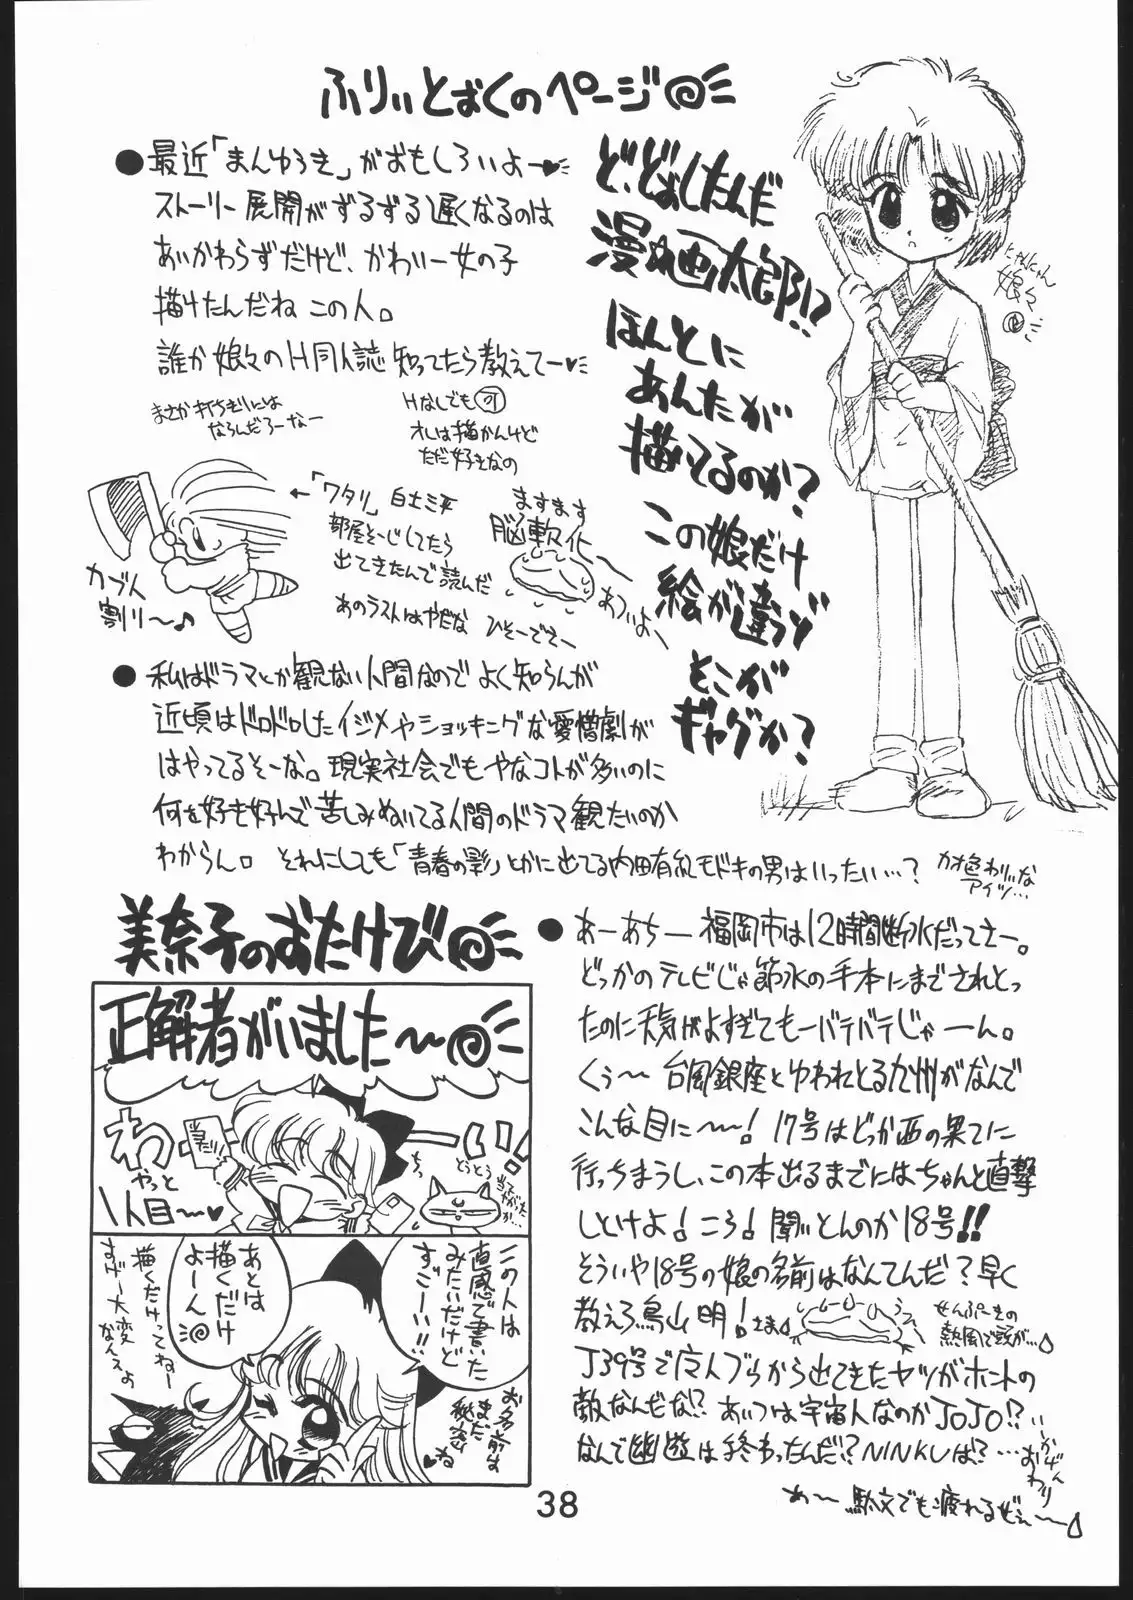 ふりぃとぉくのページ
●最近「まんゆうき」がおもしろいよー
ストーリー展開がずるずる遅くなるのは
あいかわらずだけど、かわいー女の子
描けたんだね この人。
誰か娘々のH同人誌知ってたら教えてー
まさか打ちぎりには
ならんだろーなー
Hなしでも可
オレは描かんけど
ただ好きなの
←「ワタリ」白土三平
部屋そーじしてたら
出てきたんで読んだ
あのラストはやだな
ひそーでさー
カブト
割り〜♪
ますます
脳軟化
あついよ〜
ど、どぉしたんだ
漫☆画太郎!?
ほんとに
あんたが
描いてるのか?
この娘だけ
絵が違うゾ
どこが
ギャグか?
にゃんにゃん
娘々
●私はドラマとか観ない人間なのでよく知らんが
近頃はドロドロしたイジメやショッキングな愛憎劇が
はやってるそーな。現実社会でもやなコトが多いのに
何を好き好んで苦しみぬいてる人間のドラマ観たいのか
わからん。それにしても「青春の影」とかに出てる内田有紀モドキの男はいったい…?
カオ色わりいな
アイツ…
美奈子のおたけび
正解者がいました〜
わーーい!
やっと
1人目〜
とうとう
この人は
直感で書いた
みたいだけど
すごーい!!
お名前は
まだ
秘密
ね
あとは
描くだけ
よーん
描くだけってねー
すげー大変
なんえよ
●あーあちー 福岡市は12時間断水だってさー。
どっかのテレビじゃ節水の手本にまでされとっ
たのに天気がよすぎてもーバテバテじゃーん。
くぅ〜 台風銀座とゆわれとる九州がなんで
こんな目に〜〜! 17号はどっか西の果てに
行っちまうし、この本出るまでにはちゃんと直撃
しといけよ!ころ!聞いとんのか18号!!
そういや18号の娘の名前はなんてんだ?早く
教えろ鳥山明!さま
せんぷーきの
熱風で頭が…
J39号で广人ブラから出てきたヤツがホントの
敵なんだな!?あいつは宇宙人なのかJOJO!?
なんで幽遊は終わったんだ!?NINKUは?…
いかげん
おわり
あ〜 駄文でも疲れるぜぇ〜
38